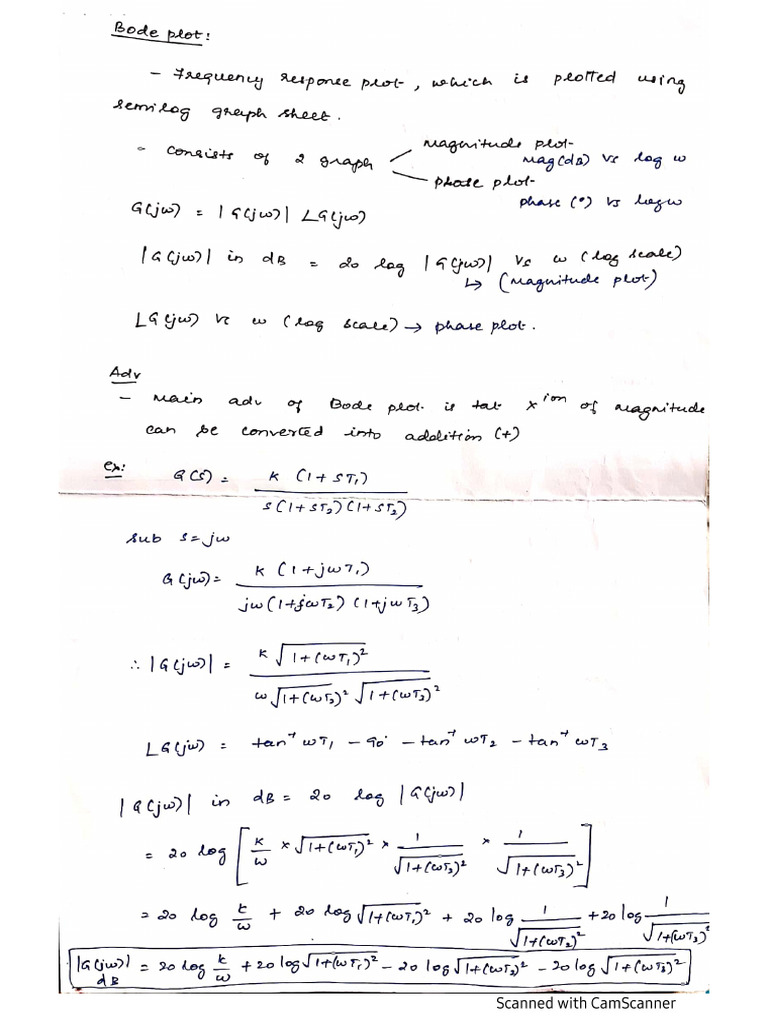 Bode plot:
- Frequency response plot, which is plotted using
semilog graph sheet.
- consists of 2 graph
magnitude plot
mag(dB) vs log ω
phase plot
phase (°) vs logω
G(jω) = |G(jω)| ∠G(jω)
|G(jω)| in dB = 20 log |G(jω)| vs ω (log scale)
↳ (magnitude plot)
∠G(jω) vs ω (log scale) → phase plot.
Adv
- Main adv of Bode plot is tat x^ion of magnitude
can be converted into addition (+)
ex: G(s) = K (1+sT₁) / s(1+sT₂)(1+sT₂)
sub s=jω
G(jω) = K (1+jωT₁) / jω(1+jωT₂) (1+jωT₃)
∴ |G(jω)| = K √1+(ωT₁)² / ω√1+(ωT₂)² √1+(ωT₃)²
∠G(jω) = tan⁻¹ ωT₁ - 90° - tan⁻¹ ωT₂ - tan⁻¹ ωT₃
|G(jω)| in dB = 20 log |G(jω)|
= 20 log [K/ω × √1+(ωT₁)² × 1/√1+(ωT₂)² × 1/√1+(ωT₃)²]
= 20 log K/ω + 20 log √1+(ωT₁)² + 20 log 1/√1+(ωT₂)² + 20 log 1/√1+(ωT₃)²
|G(jω)| dB = 20 log K/ω + 20 log √1+(ωT₁)² - 20 log √1+(ωT₂)² - 20 log √1+(ωT₃)²
Scanned with CamScanner